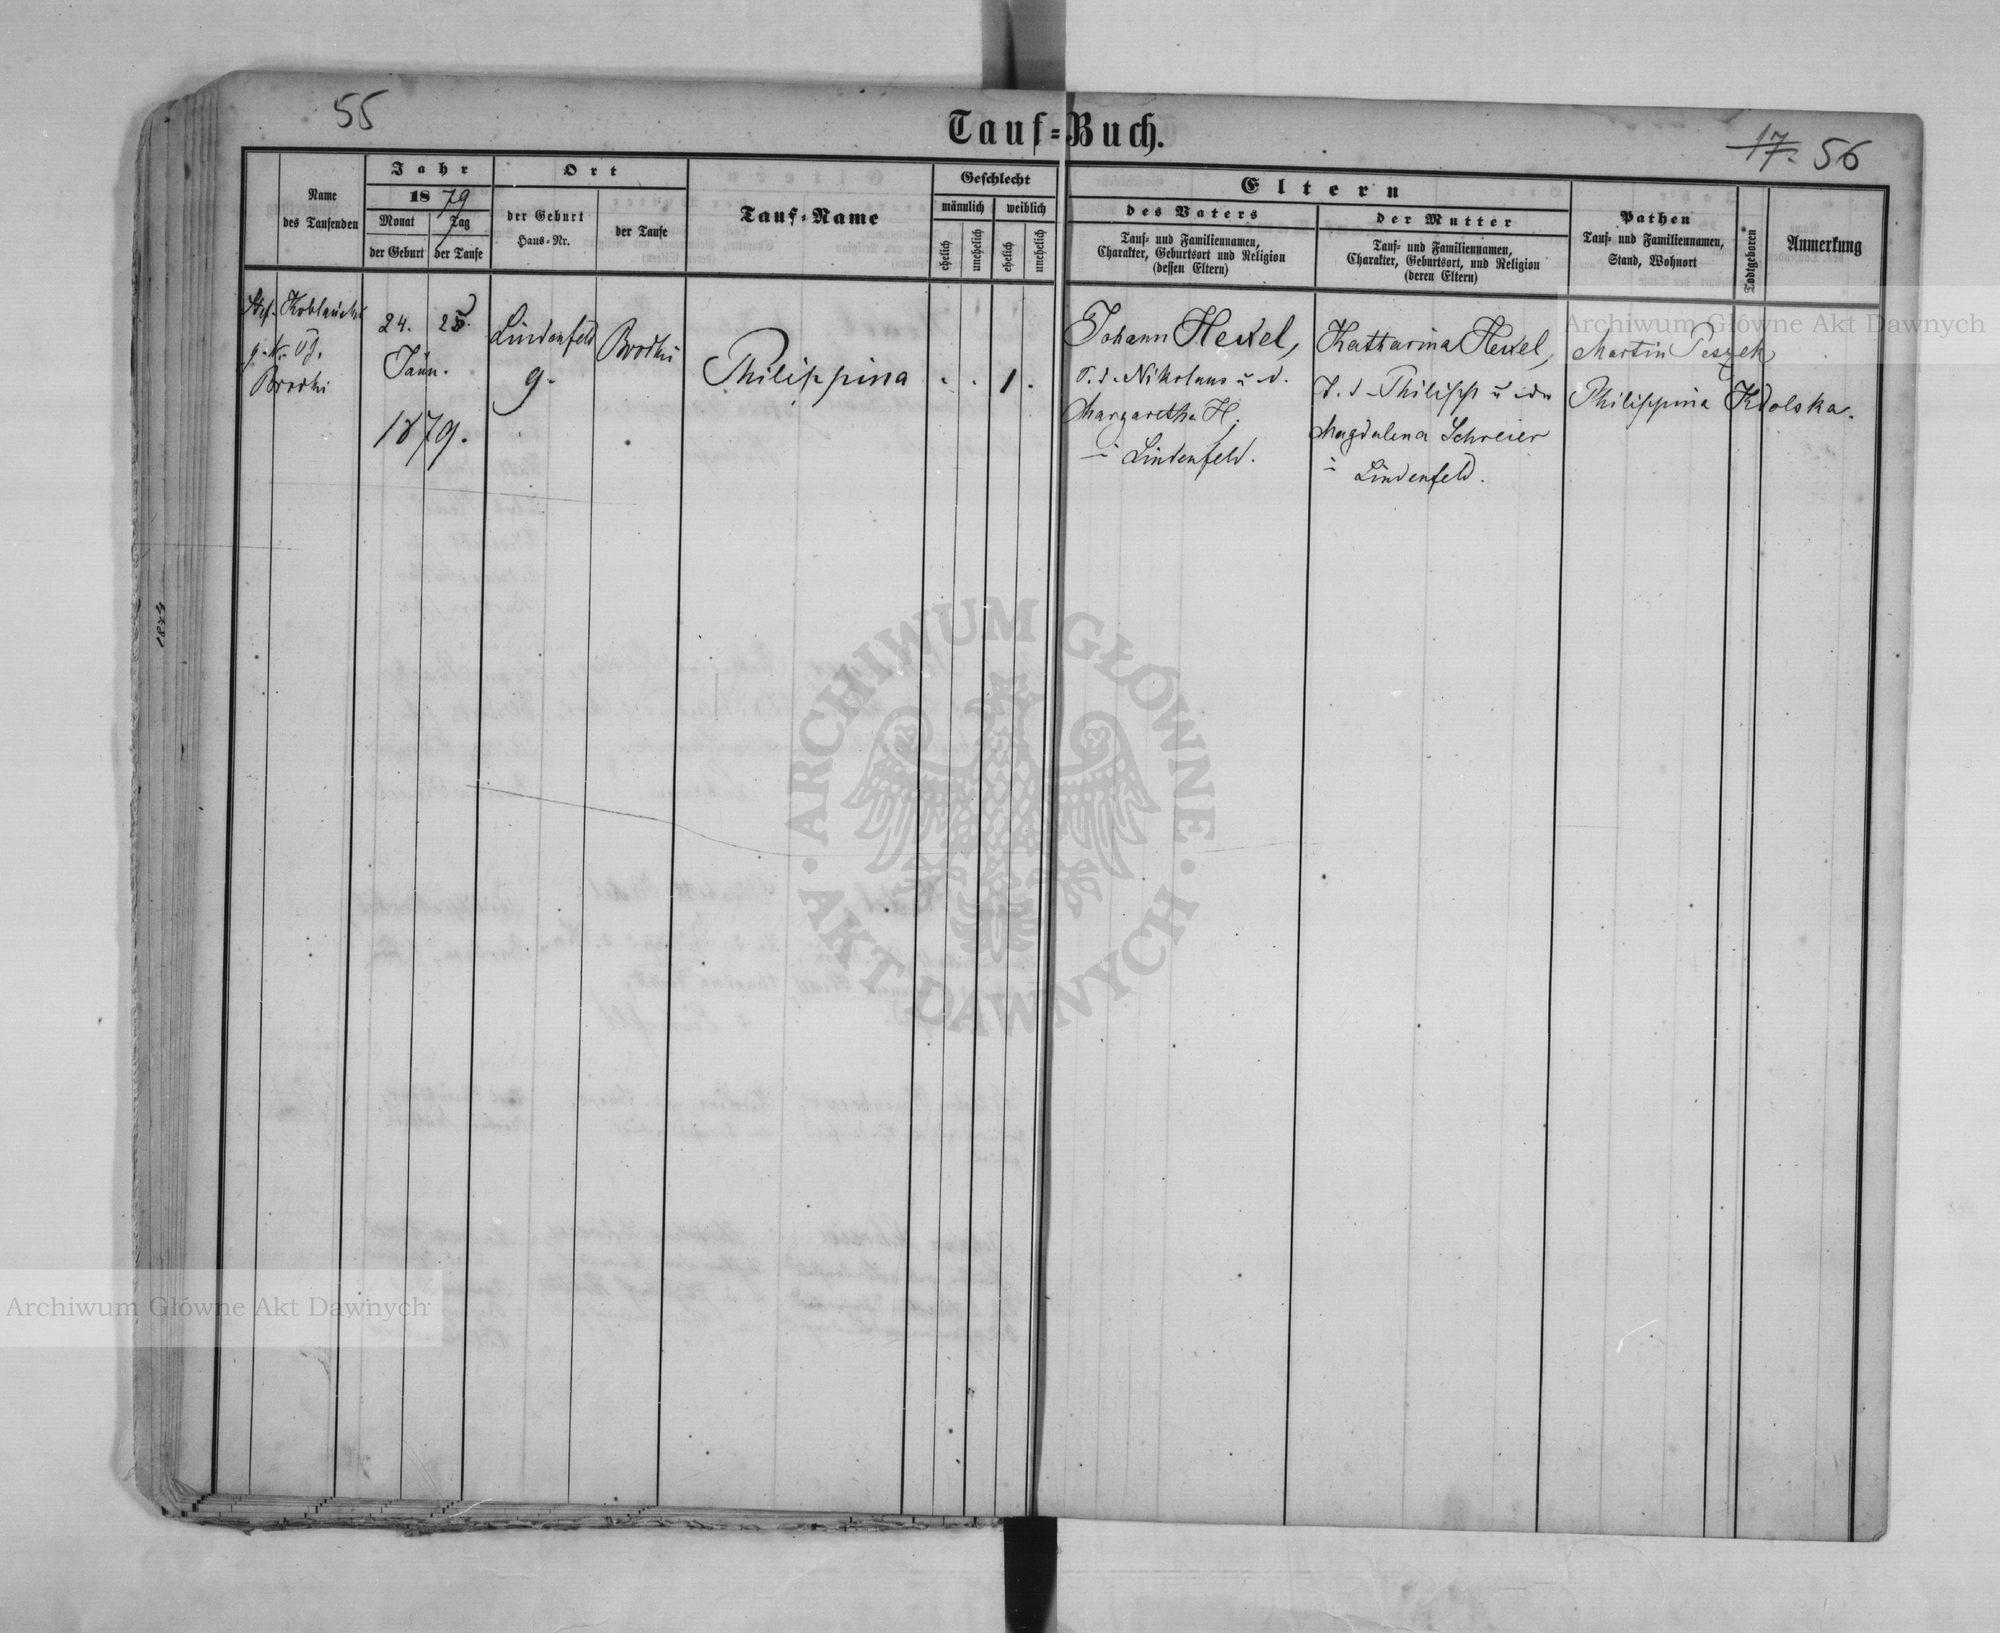 55
Tauf=Buch.
17. 56
Name
des Taufenden
Jahr
1879
Monat
der Geburt
Tag
der Taufe
Ort
der Geburt
Haus=Nr.
der Taufe
Tauf=Name
Geschlecht
männlich
weiblich
ehelich
unehelich
ehelich
unehelich
Eltern
des Vaters
Tauf= und Familiennamen,
Charakter, Geburtsort und Religion
(dessen Eltern)
der Mutter
Tauf= und Familiennamen,
Charakter, Geburtsort, und Religion
(deren Eltern)
Pathen
Tauf= und Familiennamen,
Stand, Wohnort
Todtgeboren
Anmerkung
Brodki
24. 25.
Jänn.
1879.
Lindenfeld
9.
Brodki
Philippina
1
Johann Hexel,
Nikolaus u. d.
Margaretha H.
Lindenfeld.
Katharina Hexel,
Philipp u. der
Magdalena Schreier
Lindenfeld.
Martin Peszek
Philippina Kdolska.
1874
Archiwum Główne Akt Dawnych
ARCHIWUM GŁÓWNE · AKT DAWNYCH ·
Archiwum Główne Akt Dawnych